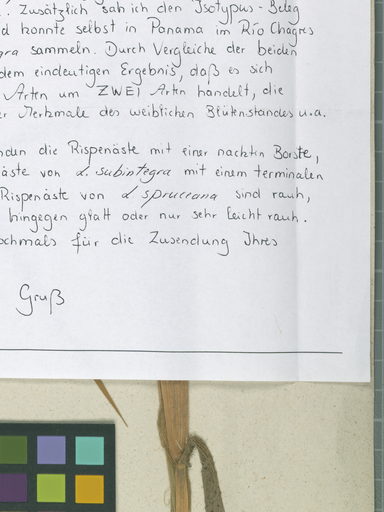 . Zusätzlich sah ich den Isotypus-Beleg
d konnte selbst in Panama im Río Chagres
gra sammeln. Durch Vergleiche der beiden
dem eindeutigen Ergebnis, daß es sich
Arten um ZWEI Arten handelt, die
er Merkmale des weiblichen Blütenstandes u.a.
nden die Rispenäste mit einer nackten Borste,
äste von L. subintegra mit einem terminalen
Rispenäste von L spruceana sind rauh,
hingegen glatt oder nur sehr leicht rauh.
ochmals für die Zusendung Ihres
Gruß